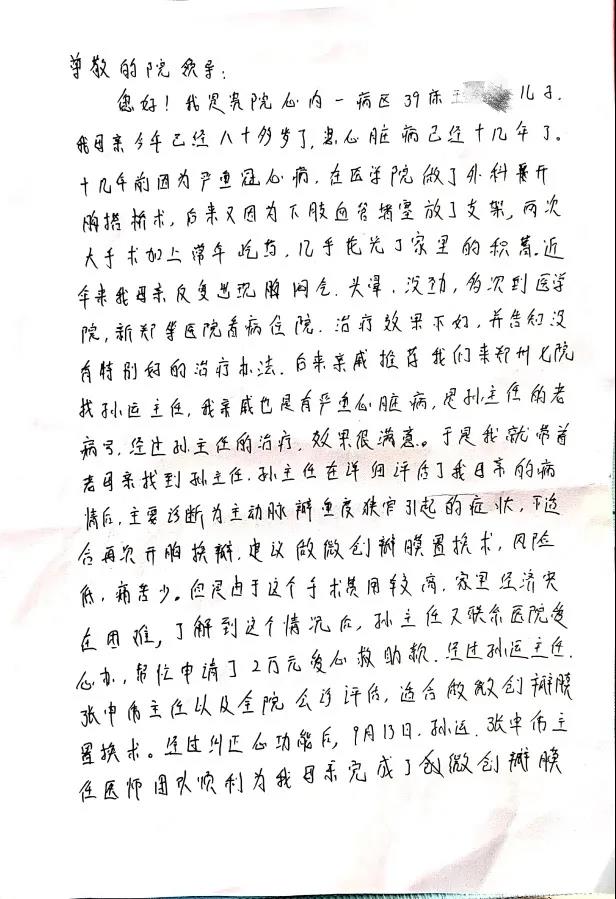 尊敬的院领导:
您好!我是贵院心内一病区39床王 儿子.
我母亲今年已经八十多岁了,患心脏病已经十几年了。
十几年前因为严重冠心病,在医学院做了外科开
胸搭桥术,后来又因为下肢血管堵塞放了支架,两次
大手术加上常年吃药,几乎花光了家里的积蓄.近
年来我母亲反复出现胸闷气、头晕、没劲,多次到医学
院,新郑等医院看病住院.治疗效果不好,并告知没
有特别好的治疗办法.后来亲戚推荐我们来郑州七院
找孙运主任,我亲戚也是有严重心脏病,是孙主任的老
病号,经过孙主任的治疗,效果很满意。于是我就带着
老母亲找到孙主任.孙主任在详细评估了我母亲的病
情后,主要诊断为主动脉瓣重度狭窄引起的症状,不适
合再次开胸换瓣,建议做微创瓣膜置换术,风险
低,痛苦少。但是由于这个手术费用较高,家里经济实
在困难,了解到这个情况后,孙主任又联系医院爱
心办,帮忙申请了2万元爱心救助款.经过孙运主任.
张申伟主任以及全院会诊评估,适合做微创瓣膜
置换术。经过纠正心功能后,9月13日.孙运.张申伟主
任医师团队顺利为我母亲完成了微创瓣膜